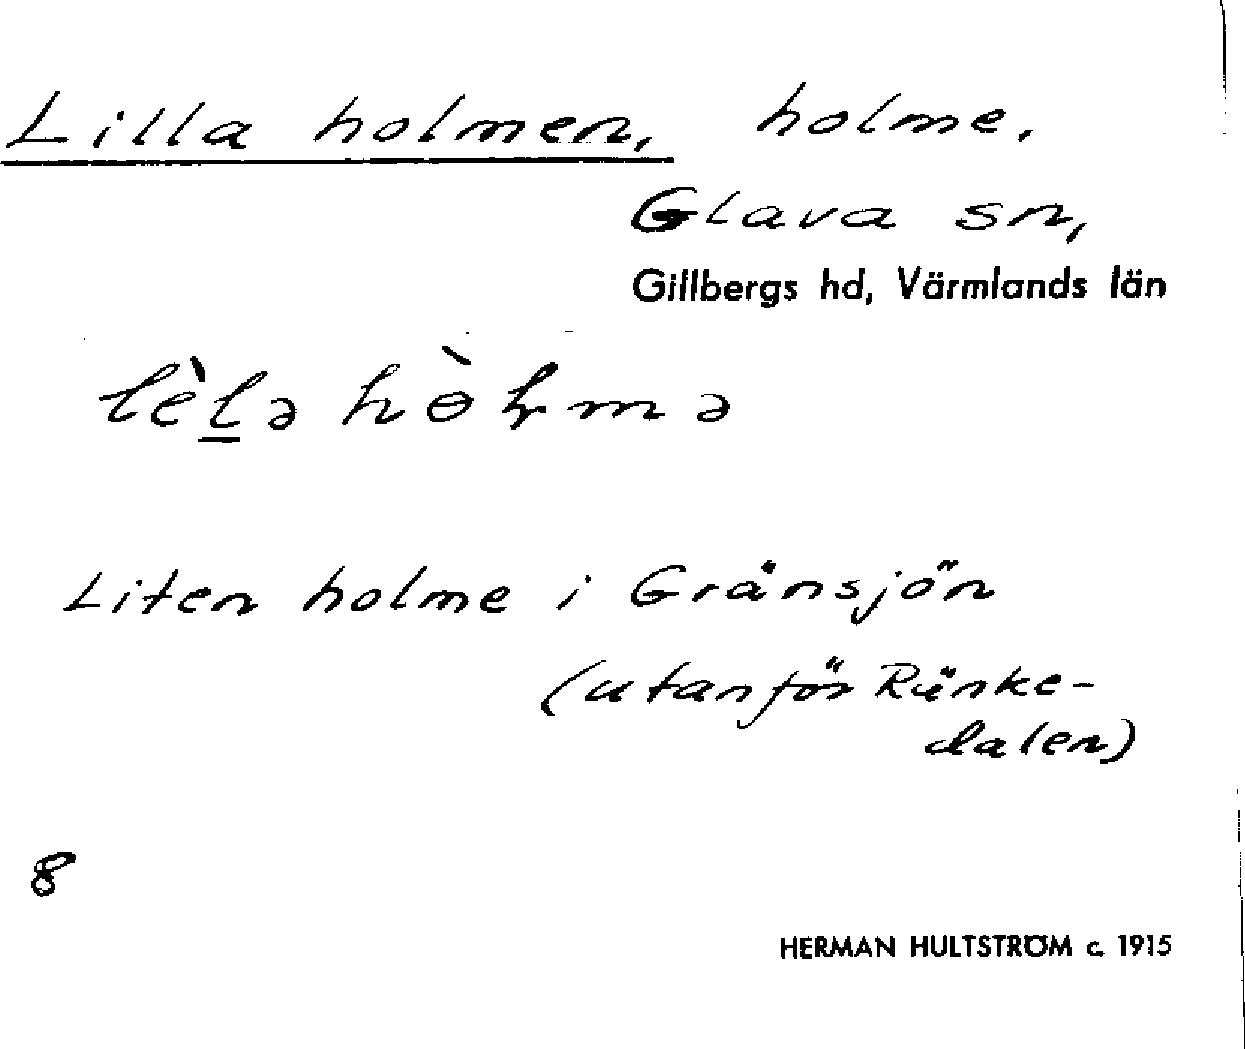 Lilla holmen, holme,
Glava sn,
Gillbergs hd, Värmlands län
lèl̲ə hɵ̀ɽmə
Liten holme i Gränsjön
(utanför Ränke-
dalen)
8
HERMAN HULTSTRÖM c. 1915